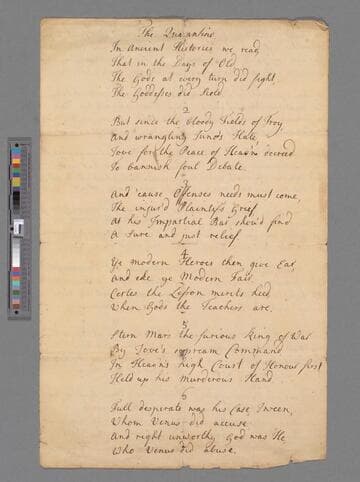 The Quarantine
In Ancient Histories we read
That in the Days of Old
The Gods at every turn did fight,
The Goddesses did Scold
2
But since the bloody Fields of Troy,
And wrangling Juno's Hate,
Jove for the Peace of Heav'n decreed
To bannish foul Debate.
3
And 'cause Offenses needs must come,
The injur'd Plaintiffs Grief
At his Impartial Bar shou'd find
A Sure and just relief
4
Ye modern Heroes then give Ear
And eke ye Modern Fair
Certes the Lesson merits heed
When Gods the Teachers are.
5
Stern Mars the furious King of War
By Jove's supream Command
In Heav'ns high Court of Honour first
Held up his murderous Hand.
6
Full desperate was his Case I ween,
Whom Venus did accuse
And right unworthy God was He
Who Venus did abuse.